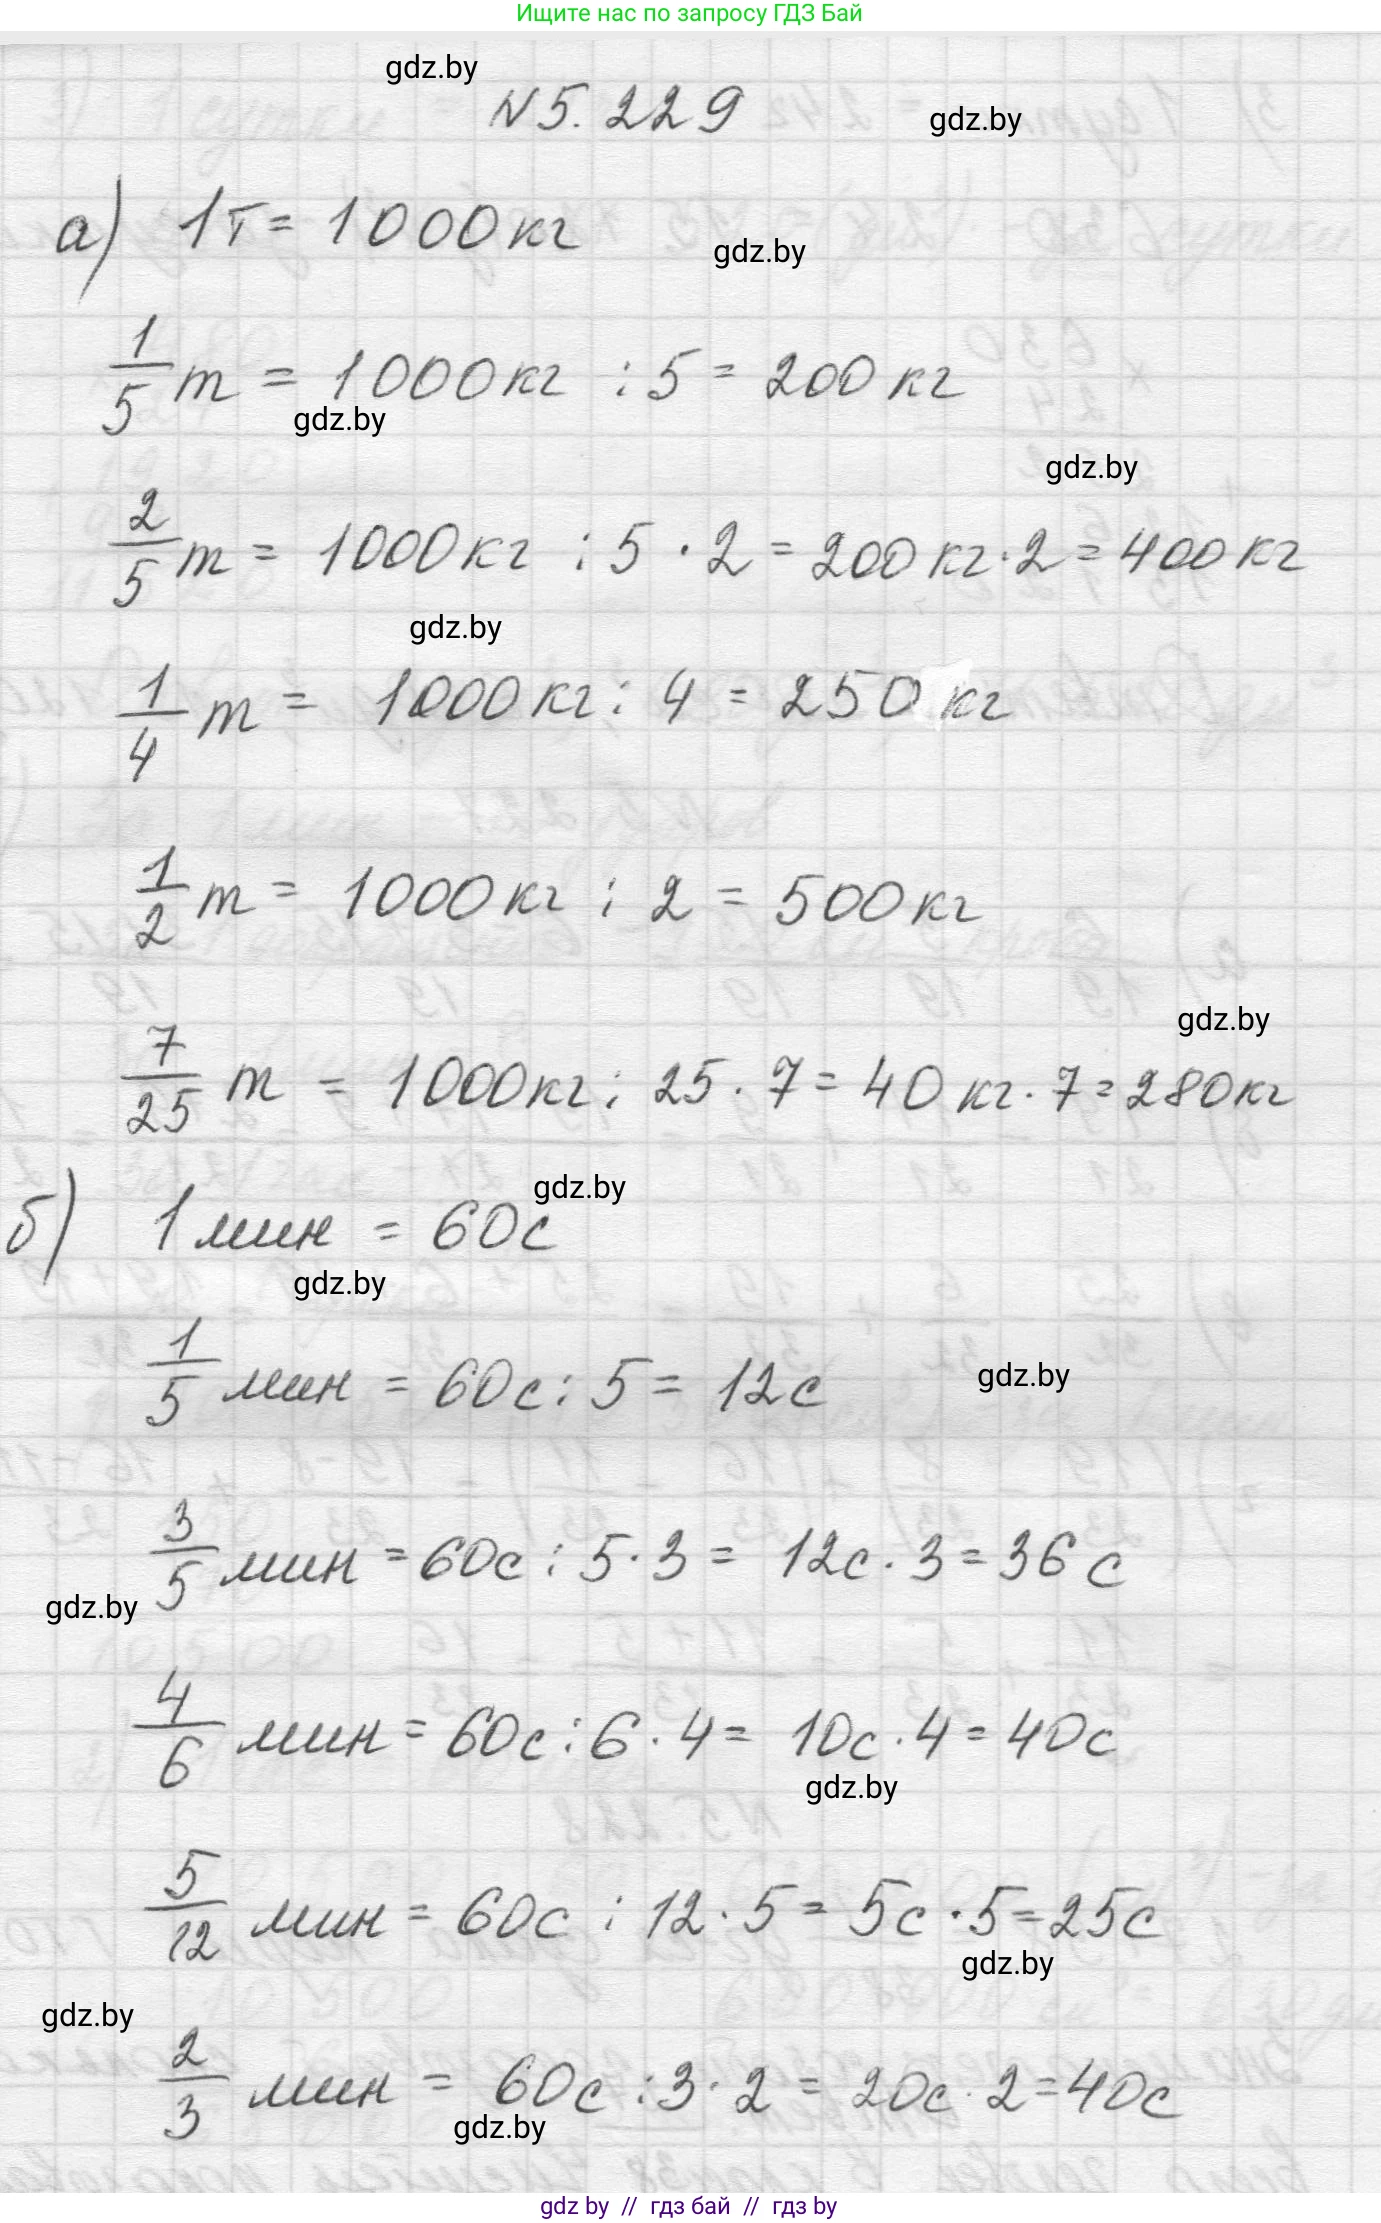 Ищите нас по запросу ГДЗ Бай
gdz.by
№5.229
gdz.by
а) 1т = 1000кг
gdz.by
1/5 т = 1000кг : 5 = 200 кг
gdz.by
gdz.by
2/5 т = 1000кг : 5 · 2 = 200 кг · 2 = 400 кг
gdz.by
1/4 т = 1000кг : 4 = 250 кг
1/2 т = 1000кг : 2 = 500кг
gdz.by
7/25 т = 1000кг : 25 · 7 = 40 кг · 7 = 280кг
gdz.by
б) 1 мин = 60с
gdz.by
1/5 мин = 60с : 5 = 12с
gdz.by
3/5 мин = 60с : 5 · 3 = 12с · 3 = 36 с
gdz.by
4/6 мин = 60с : 6 · 4 = 10с · 4 = 40с
gdz.by
5/12 мин = 60с : 12 · 5 = 5с · 5 = 25с
gdz.by
gdz.by
2/3 мин = 60с : 3 · 2 = 20с · 2 = 40с
gdz.by
gdz by // гдз бай // гдз by